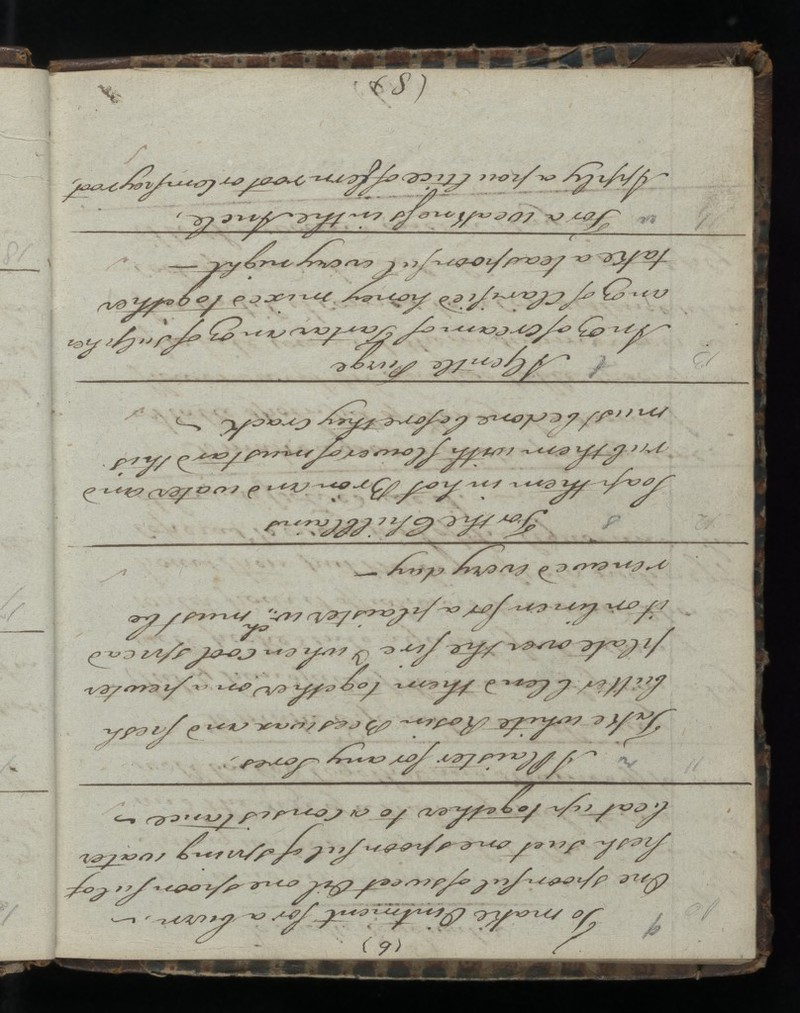 (6)
10 9 To make Ointment for a burn. ~
One spoonful of sweet Oil one spoonful of
fresh suet one spoonful of spring water
beat up together to a consistance ~
11 A Plaister for any Sores.
Take white Rosin Beeswax and fresh
butter blend them together on a pewter
plate over the fire & when cool spread
it on linen for a plaister wch must be
renewed every day —
12 8 For the Chilblains
Soap them in hot Brine and water and
rub them with flower of mustard this
must be done before they crack ~
13 A gentle Purge
An oz of Cream of Tartar an oz of Sulpher
an oz of Clarified honey mixed together
take a teaspoonful every night —
For a weakness in the Ancle,
Apply a poultice of fern root or Comfrey root,
(8)
18